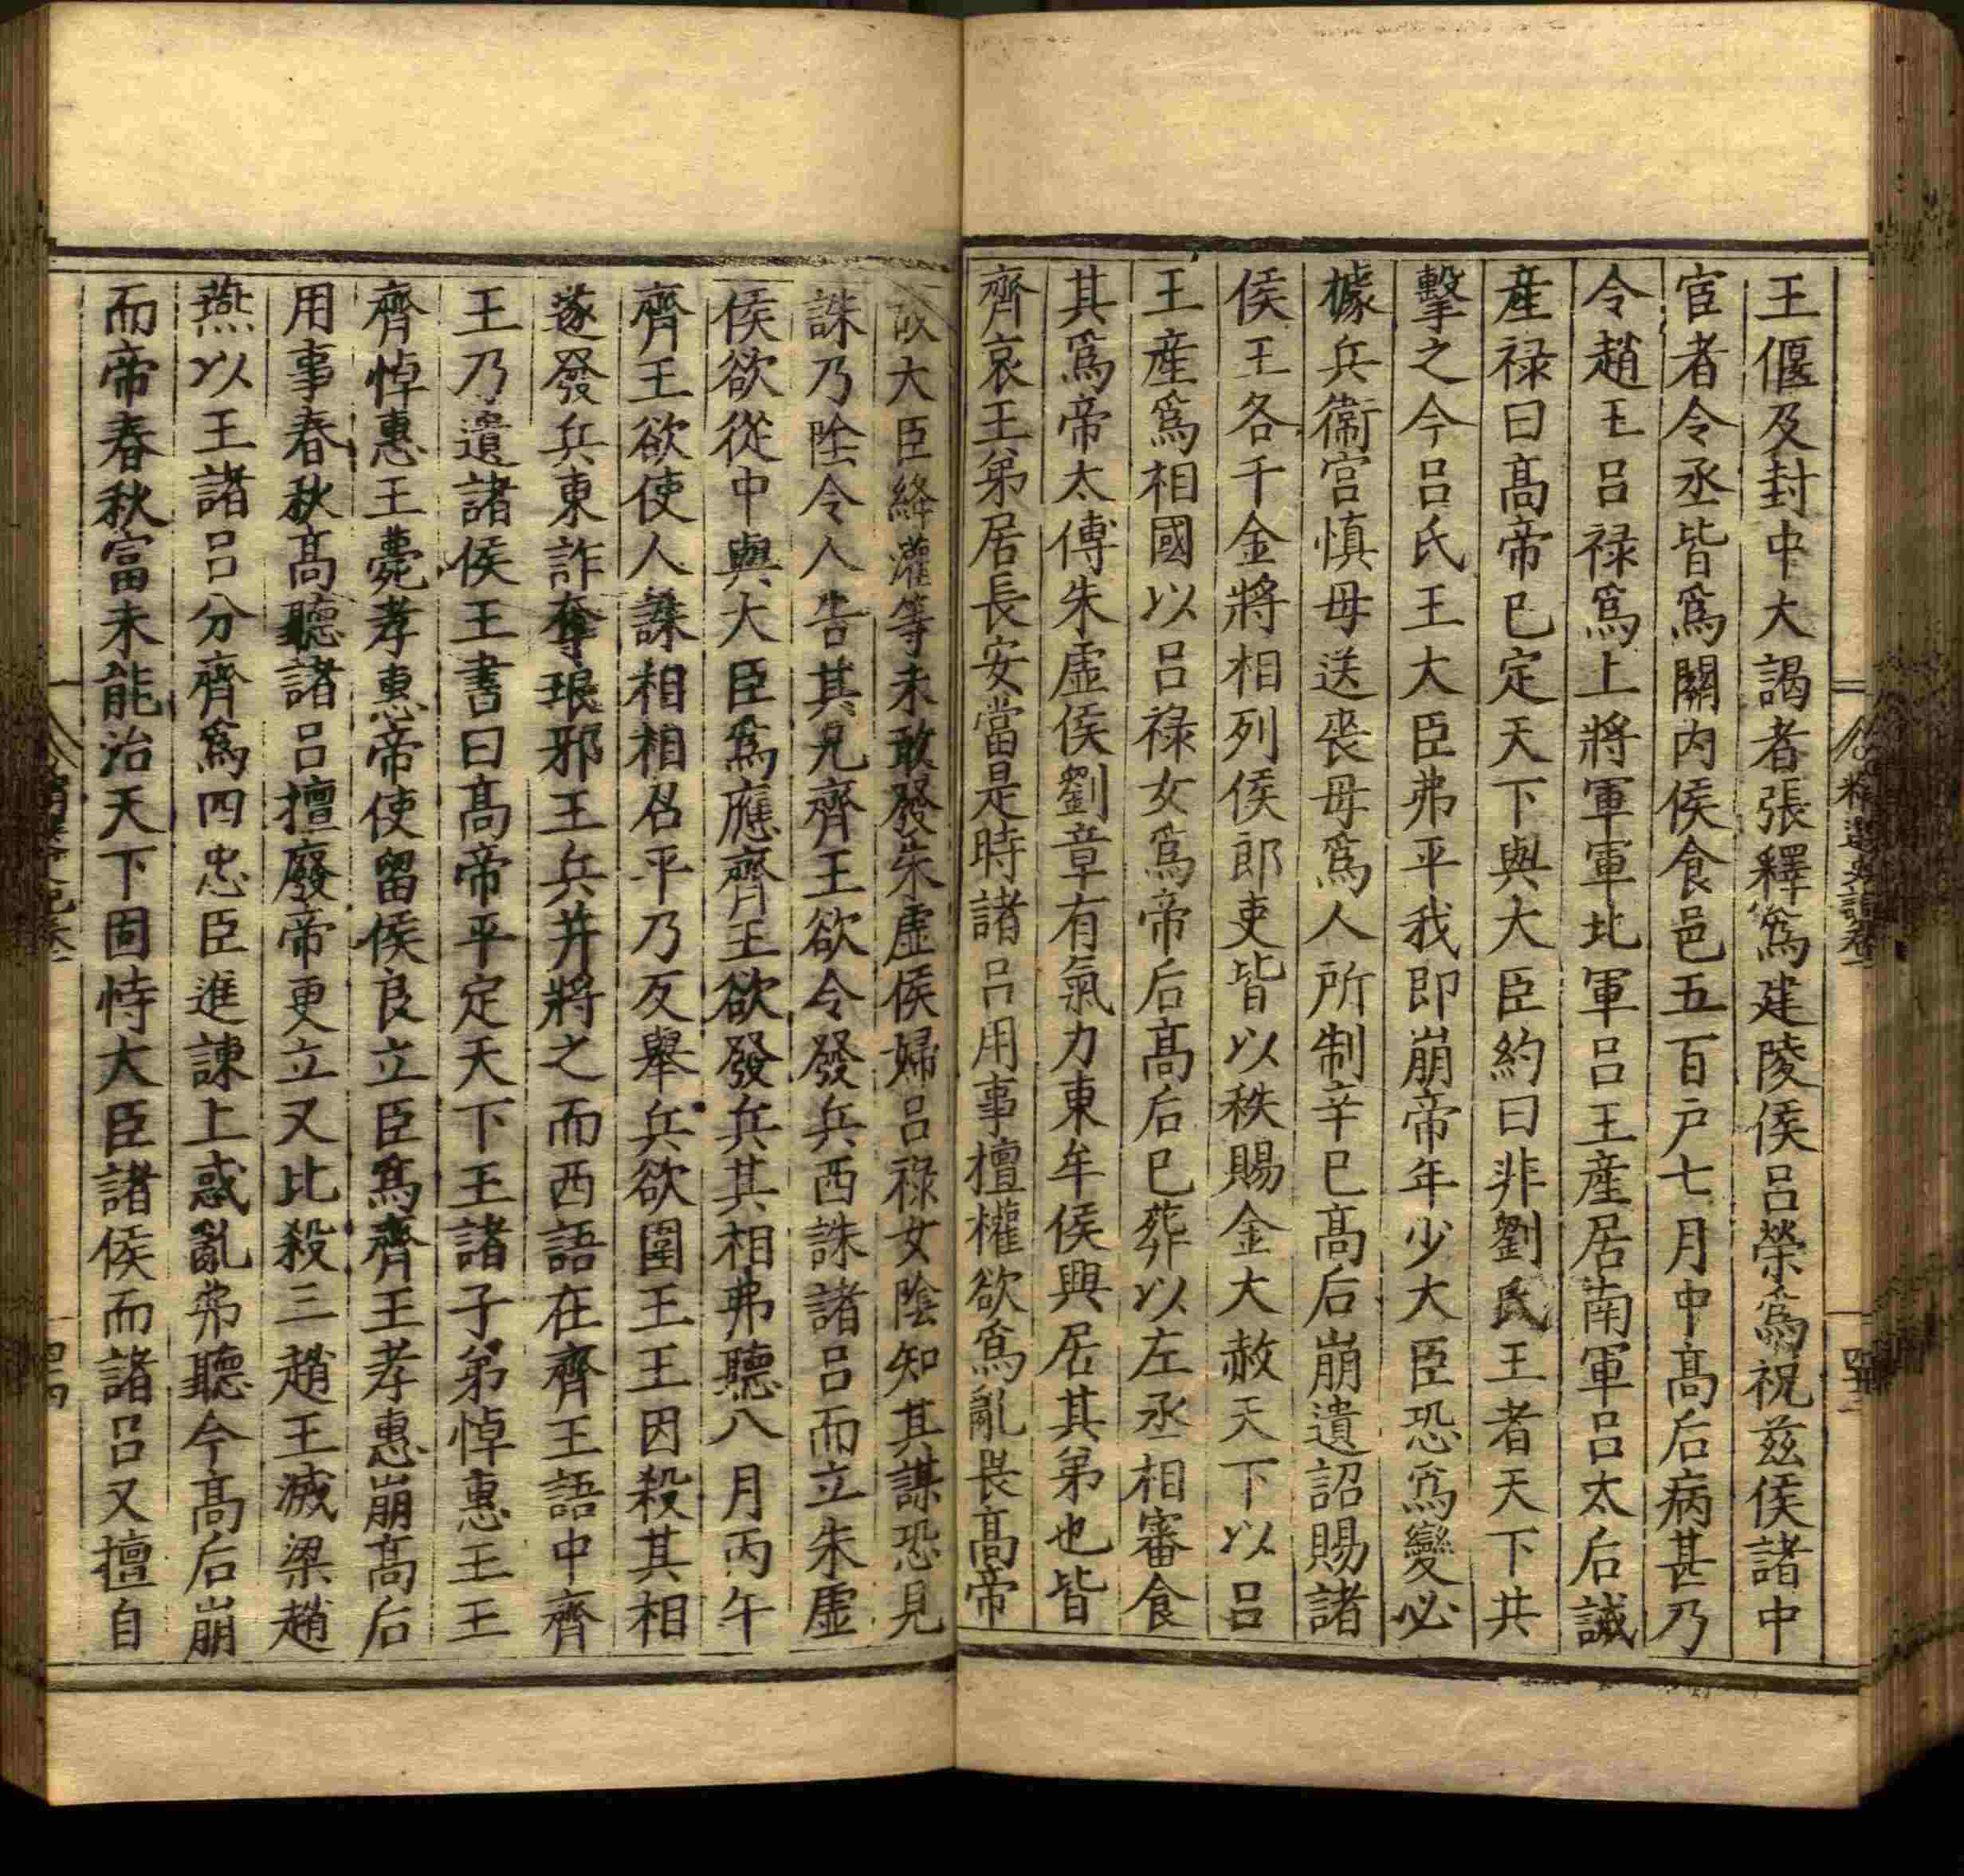 王偃及封中大謁者張釋爲建陵侯呂榮爲祝兹侯諸中
宦者令丞皆爲關内侯食邑五百户七月中髙后病甚乃
令趙王呂禄爲上將軍軍北軍呂王産居南軍呂太后誡
産禄曰髙帝已定天下與大臣約曰非劉氏王者天下共
擊之今呂氏王大臣弗平我即崩帝年少大臣恐爲變必
據兵衞宫慎毋送喪毋爲人所制辛巳髙后崩遺詔賜諸
侯王各千金將相列侯郎吏皆以秩賜金大赦天下以呂
王産爲相國以呂禄女爲帝后髙后已葬以左丞相審食
其爲帝太傅朱虚侯劉章有氣力東牟侯興居其弟也皆
齊哀王弟居長安當是時諸呂用事擅權欲爲亂畏髙帝
故大臣絳灌等未敢發朱虚侯婦呂禄女隂知其謀恐見
誅乃隂令人告其兄齊王欲令發兵西誅諸呂而立朱虚
侯欲從中與大臣爲應齊王欲發兵其相弗聽八月丙午
齊王欲使人誅相相召平乃反舉兵欲圍王王因殺其相
遂發兵東詐奪琅邪王兵并將之而西語在齊王語中齊
王乃遺諸侯王書曰髙帝平定天下王諸子弟悼惠王王
齊悼惠王薨孝惠帝使留侯良立臣爲齊王孝惠崩髙后
用事春秋髙聽諸呂擅廢帝更立又比殺三趙王滅梁趙
燕以王諸呂分齊爲四忠臣進諫上惑亂弗聽今髙后崩
而帝春秋富未能治天下固恃大臣諸侯而諸呂又擅自